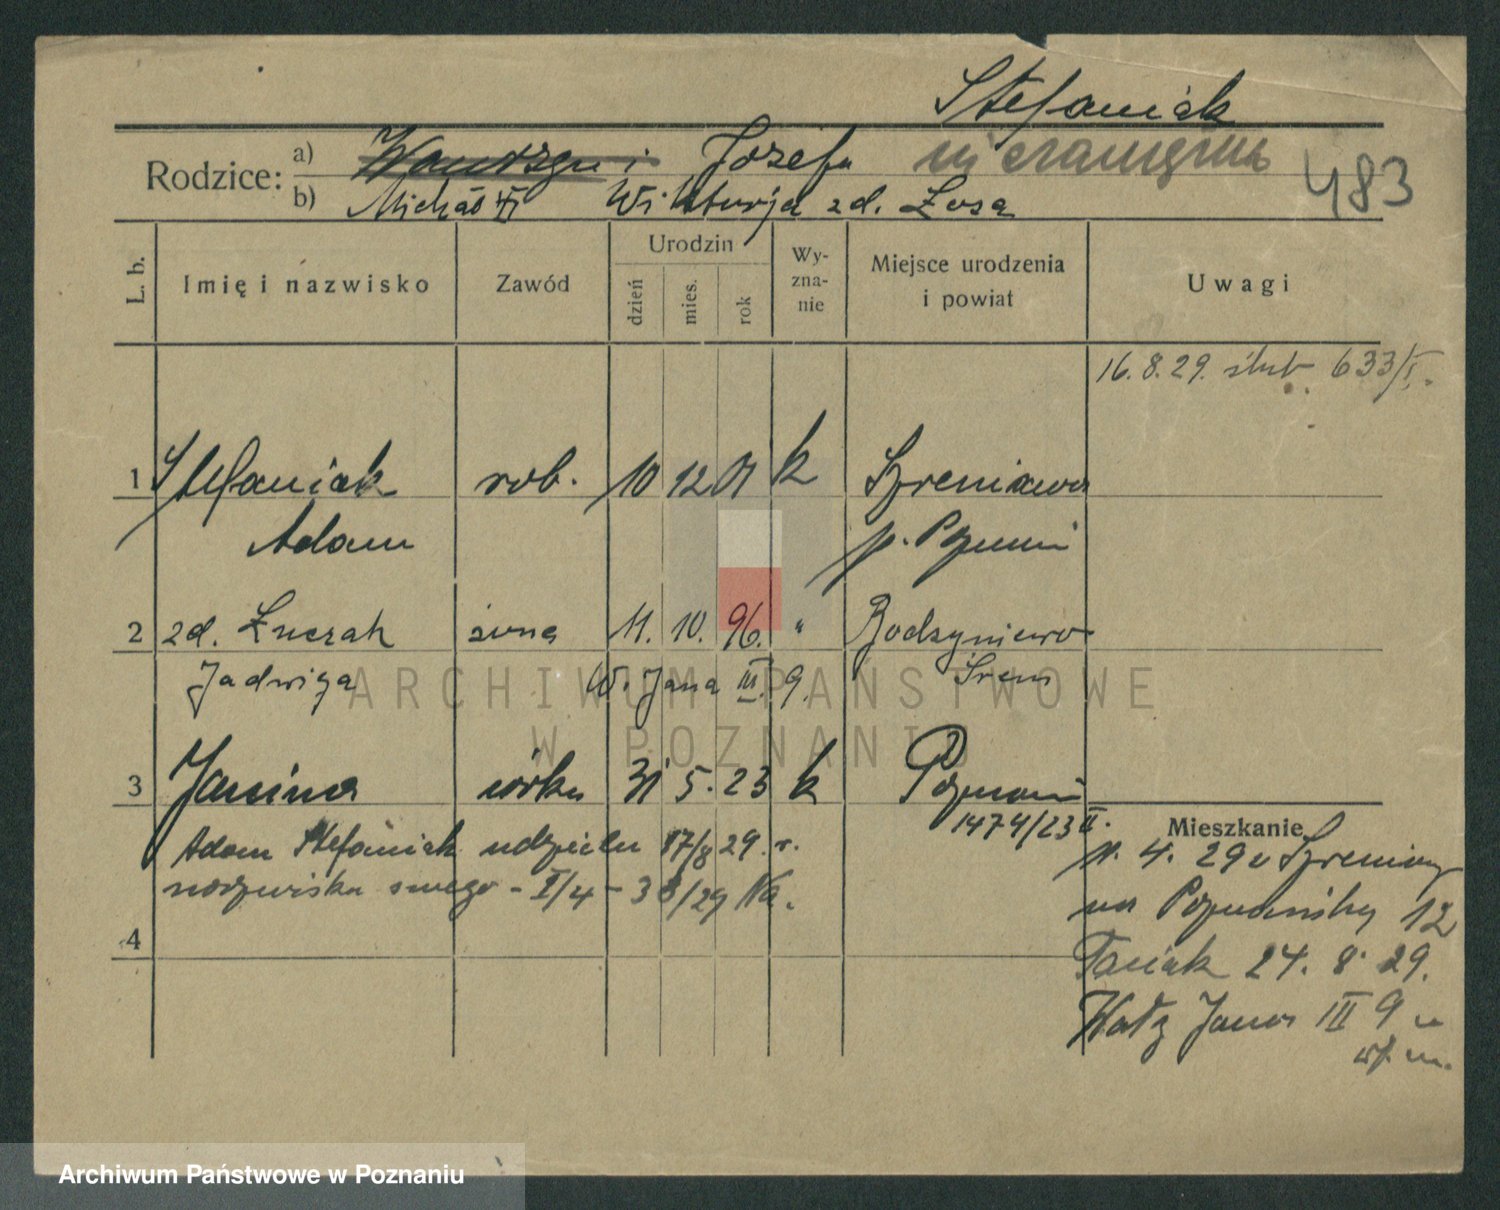 Stefaniak
Rodzice: a) Wawrzyn i Józefa niezamężna
b) Michał Wiktorja zd. Łusa
483
L. b. Imię i nazwisko Zawód Urodzin dzień mies. rok Wyznanie Miejsce urodzenia i powiat Uwagi
16.8.29. ślub 633/I.
1 Stefaniak rob. 10 12 01 k Szreniawa
Adam p. Poznań
2 zd. Łuczak żona 11. 10. 96. " Bodzyniewo
Jadwiga W. Jana III. 9. Śrem
3 Janina córka 31 5. 23 k Poznań
1474/23 II.
Adam Stefaniak udziela 17/8 29. r.
nazwiska swego - I/4 - 38/29 Na.
4
Mieszkanie
11. 4. 29 z Szreniawy
na Poznańska 12
24. 8. 29.
Jana III 9
ARCHIWUM PAŃSTWOWE
W POZNANIU
Archiwum Państwowe w Poznaniu